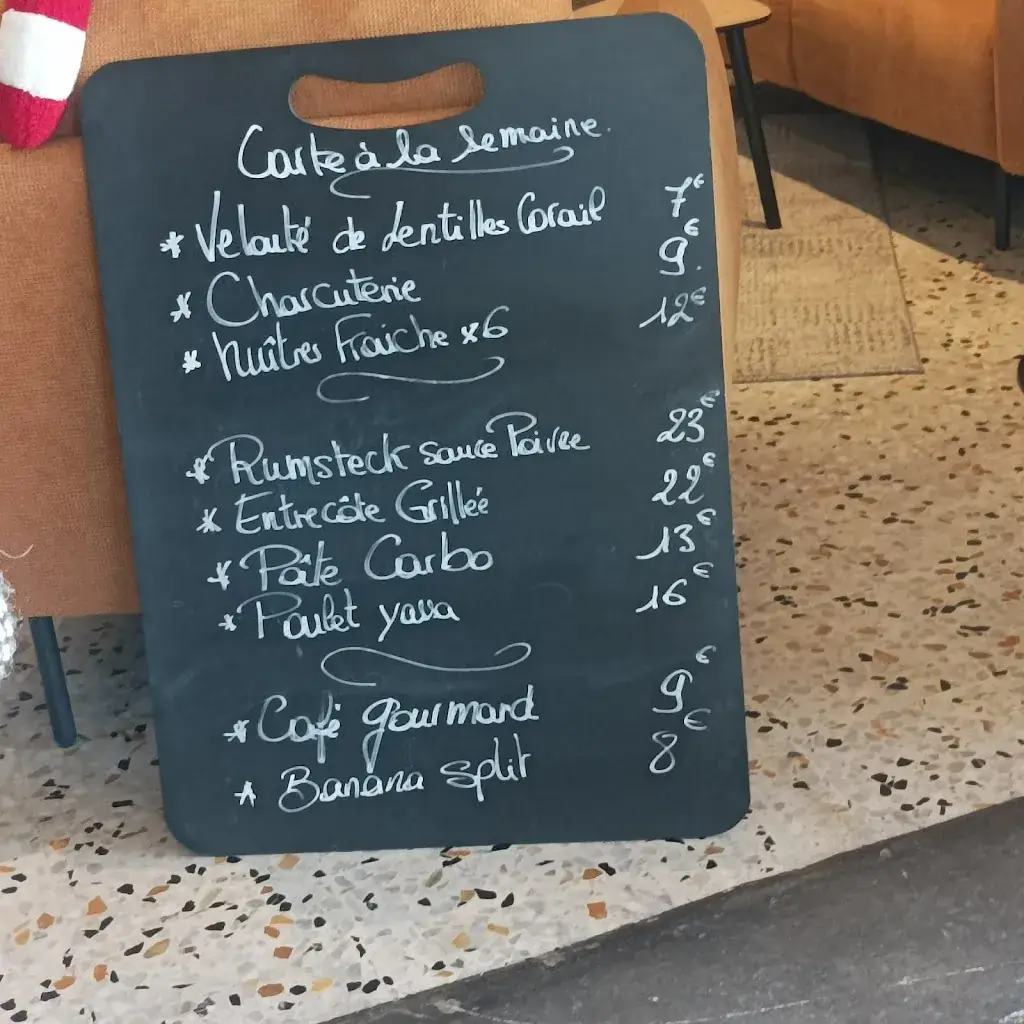 Carte à la semaine.
* Velouté de Lentilles Corail 7€
* Charcuterie 9€.
* Huîtres Fraîche x6 12€
* Rumsteck sauce Poivre 23€
* Entrecôte Grillée 22€
* Pâte Carbo 13€
* Poulet yassa 16€
* Café gourmand 9€
* Banana split 8€